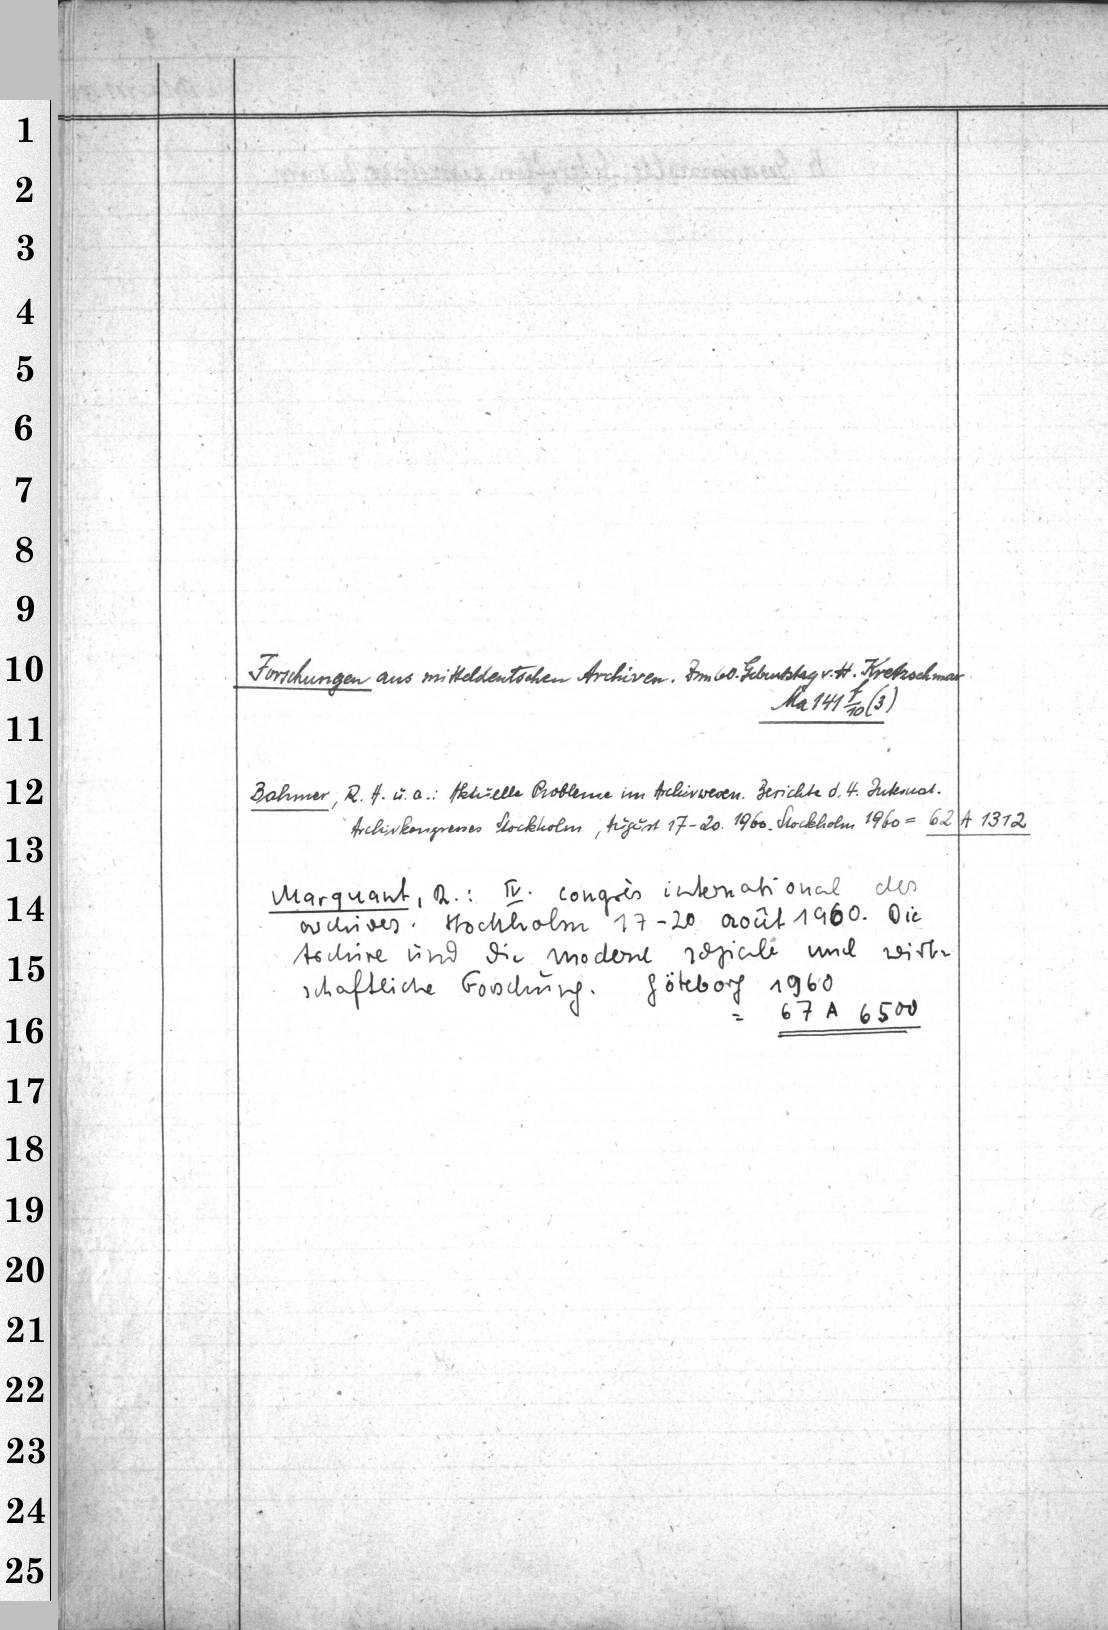 1
2
3
4
5
6
7
8
9
10
11
12
13
14
15
16
17
18
19
20
21
22
23
24
25
Forschungen aus mitteldeutschen Archiven. Zum 60. Geburtstag v. H. Kretzschmar
Ma 141 f/10 (3)
Bahmer, R. H. u. a.: Aktuelle Probleme im Archivwesen. Berichte d. 4. Internat.
Archivkongresses Stockholm, August 17-20. 1960. Stockholm 1960 = 62 A 1312
Marquant, R.: IV. congrès international des
archives. Stockholm 17-20 août 1960. Die
Archive und die moderne soziale und wirt-
schaftliche Forschung. Göteborg 1960
= 67 A 6500